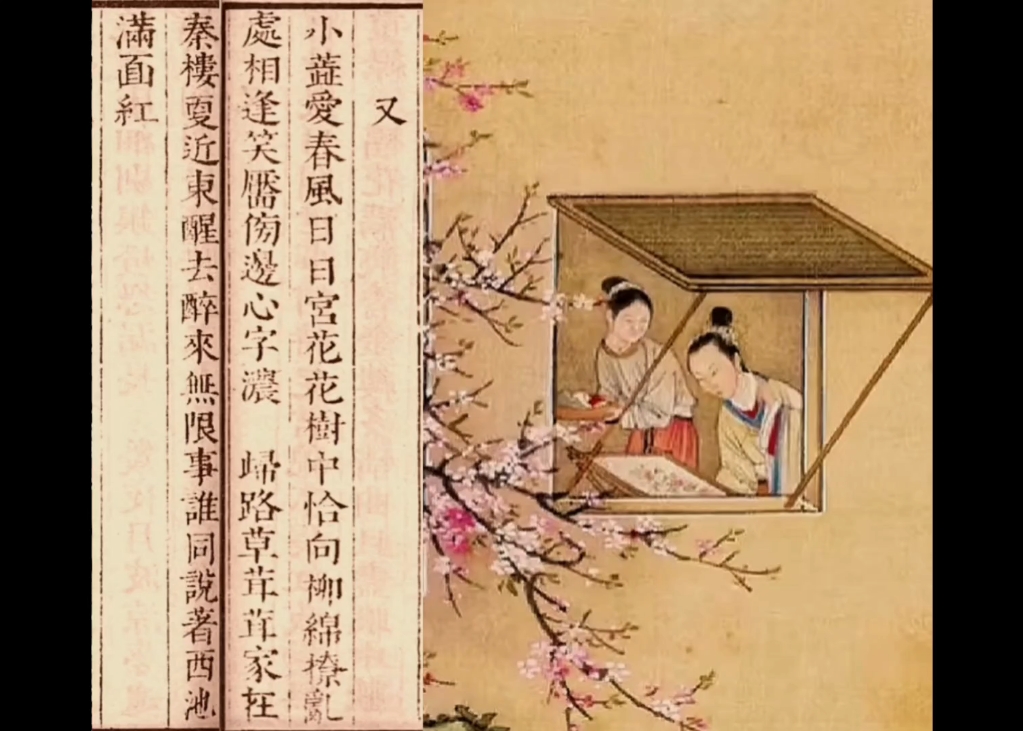 又
小蕋愛春風日日宮花花樹中恰向柳綿撩亂
處相逢笑靨傍邊心字濃　歸路草茸茸家在
秦樓更近東醒去醉來無限事誰同說著西池
滿面紅